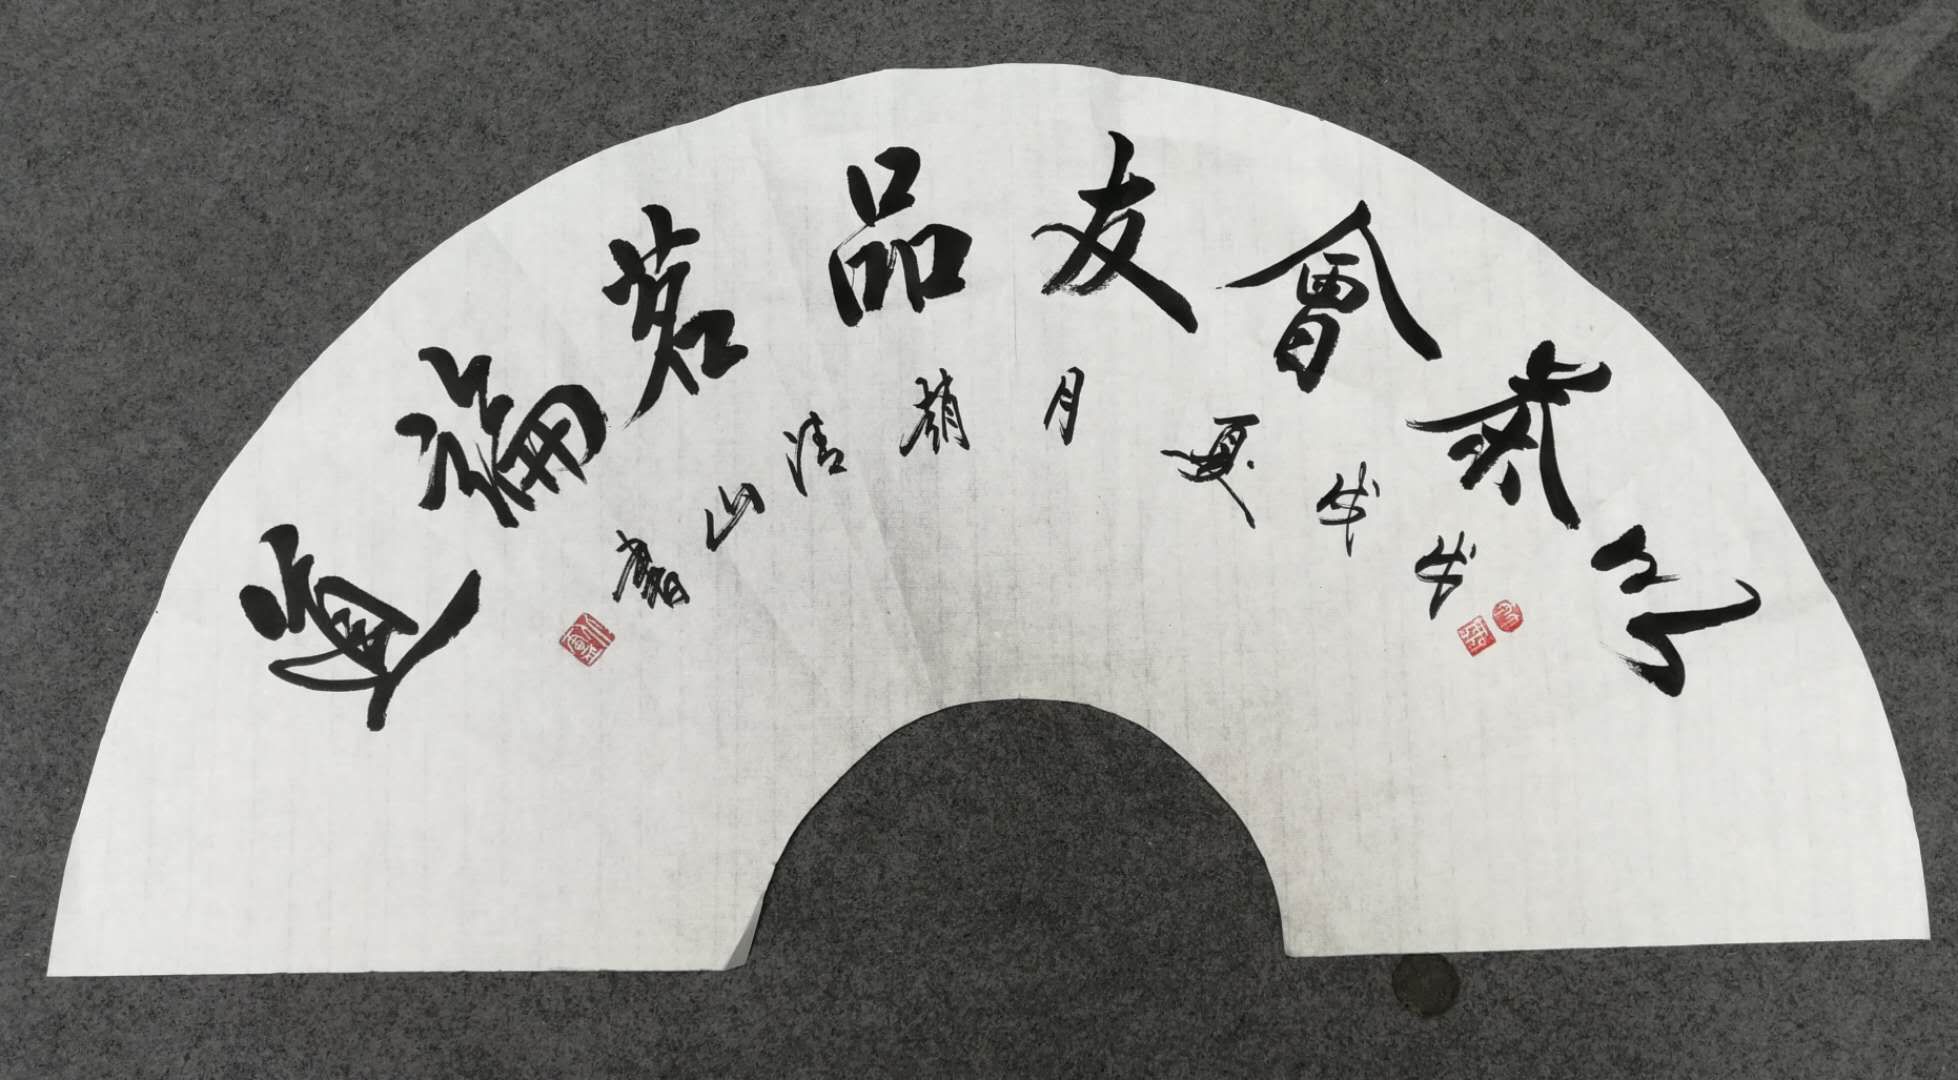 以茶會友品茗論道
戊戌夏月趙清山書